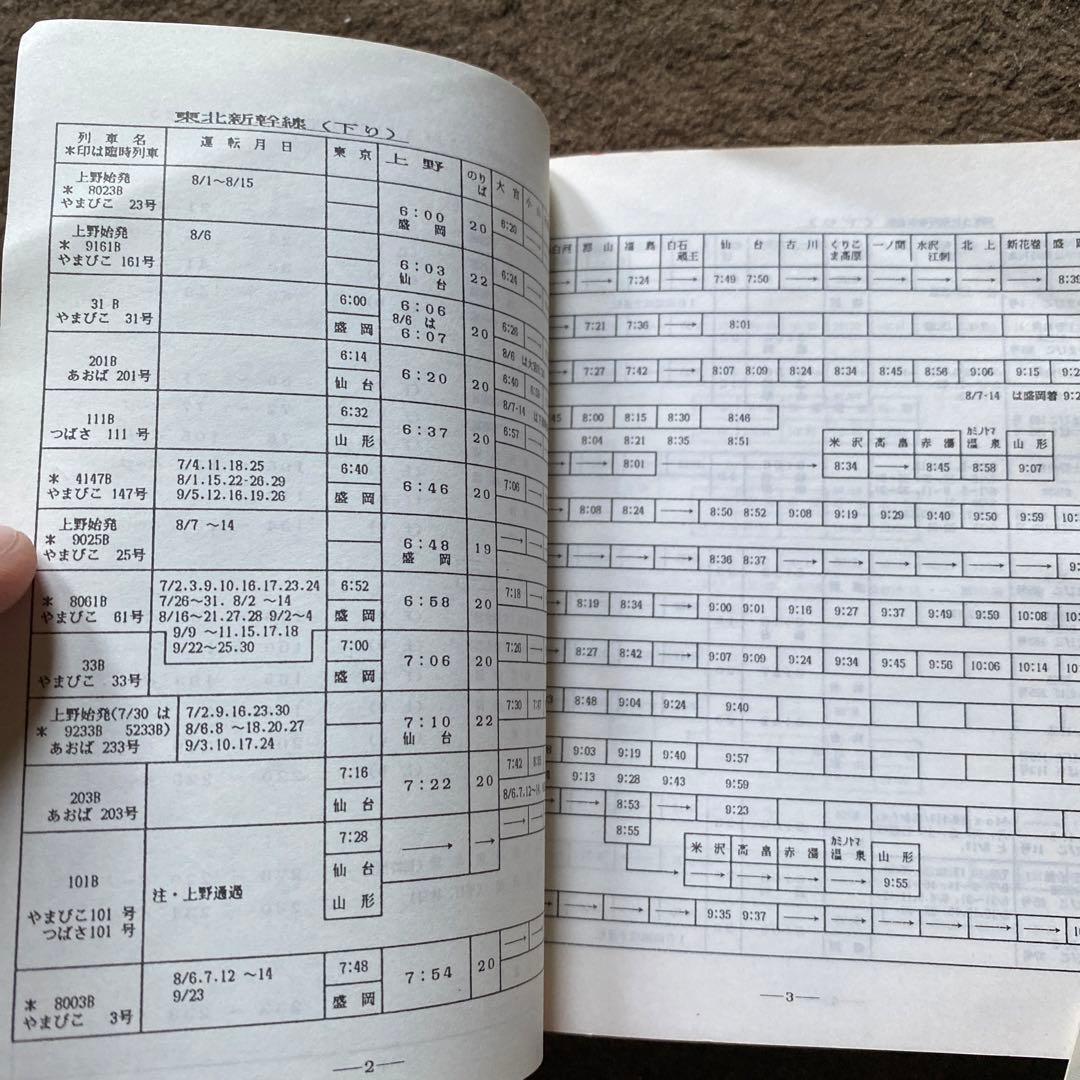 東北新幹線 (下り)
列車名 運転月日 東京 上野 のりば 大宮
*印は臨時列車
上野始発 8/1～8/15
* 8023B 6:00 20 6:20
やまびこ 23号 盛岡
上野始発 8/6
* 9161B 6:03 22 6:24
やまびこ 161号 仙台
31B 6:00 6:06 20 6:26
やまびこ 31号 盛岡 8/6 は 6:07
201B 6:14 6:20 20 6:40
あおば 201号 仙台
111B 6:32 6:37 20 6:57
つばさ 111号 山形
* 4147B 7/4.11.18.25 6:40 6:46 20 7:06
やまびこ 147号 8/1.15.22-26.29 盛岡
9/5.12.16.19.26
上野始発 8/7 ～14
* 9025B 6:48 19 → →
やまびこ 25号 盛岡
7/2.3.9.10.16.17.23.24 6:52
* 8061B 7/26～31. 8/2 ～14 6:58 20 7:18
やまびこ 61号 8/16～21.27.28 9/2～4 盛岡
9/9 ～11.15.17.18
9/22～25.30
33B 7:00 7:06 20 7:26
やまびこ 33号 盛岡
上野始発(7/30 は 7/2.9.16.23.30
* 9233B 5233B) 8/6.8 ～18.20.27 7:10 22 7:30
あおば 233号 9/3.10.17.24 仙台
203B 7:16 7:22 20 7:42
あおば 203号 仙台
101B 7:28 → → → →
やまびこ101 号 注・上野通過 仙台
つばさ101 号 山形
* 8003B 8/6.7.12 ～14 7:48 7:54 20 → →
やまびこ 3号 9/23 盛岡
―2―
白河 郡山 福島 白石蔵王 仙台 古川 くりこま高原 一ノ関 水沢江刺 北上 新花巻
→ → 7:24 → 7:49 7:50 → → → → → → 8:39
→ 7:21 7:36 → 8:01
→ 7:27 7:42 → 8:07 8:09 8:24 8:34 8:45 8:56 9:06 9:15
8/7-14 は盛岡着
8:00 8:15 8:30 8:46
8:04 8:21 8:35 8:51
米沢 高畠 赤湯 カミノヤマ温泉 山形
→ → 8:01 → 8:34 → 8:45 8:58 9:07
→ 8:08 8:24 → 8:50 8:52 9:08 9:19 9:29 9:40 9:50 9:59
→ → → → 8:36 8:37 → → → → → →
→ 8:19 8:34 → 9:00 9:01 9:16 9:27 9:37 9:49 9:59 10:08
→ 8:27 8:42 → 9:07 9:09 9:24 9:34 9:45 9:56 10:06 10:14
8:48 9:04 9:24 9:40
9:03 9:19 9:40 9:57
9:13 9:28 9:43 9:59
→ → 8:53 → 9:23
8:55
米沢 高畠 赤湯 カミノヤマ温泉 山形
→ → → → 9:55
→ → → → 9:35 9:37 → → → → → →
―3―